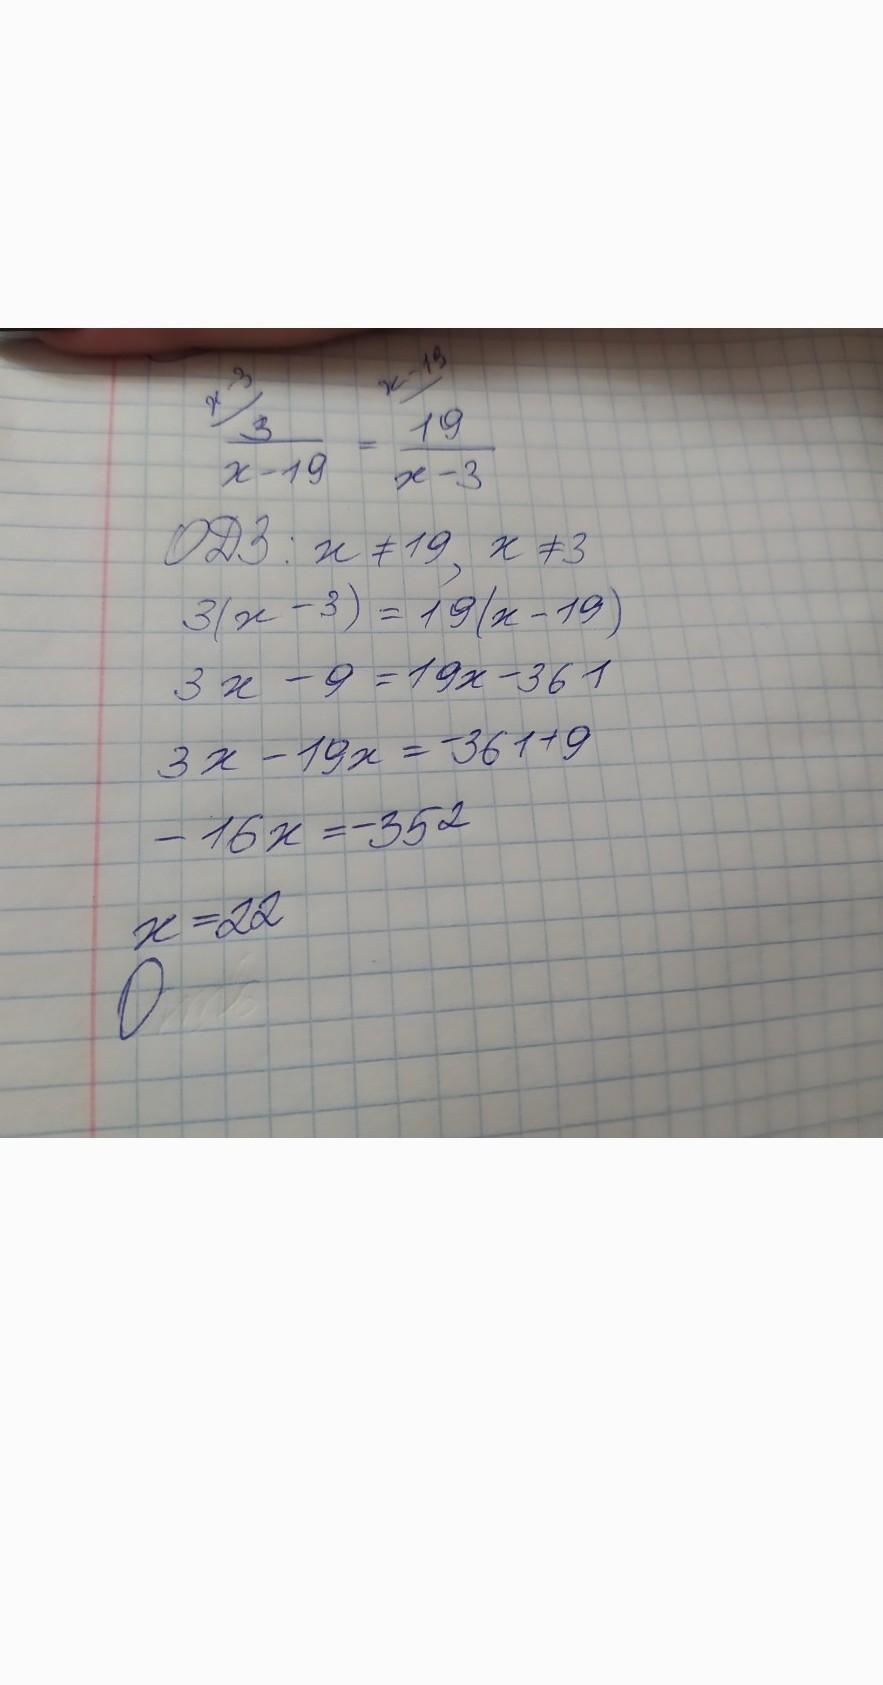 x-3 x-19
3/(x-19) = 19/(x-3)
ОДЗ: x ≠ 19, x ≠ 3
3(x-3) = 19(x-19)
3x - 9 = 19x - 361
3x - 19x = -361+9
-16x = -352
x = 22
О